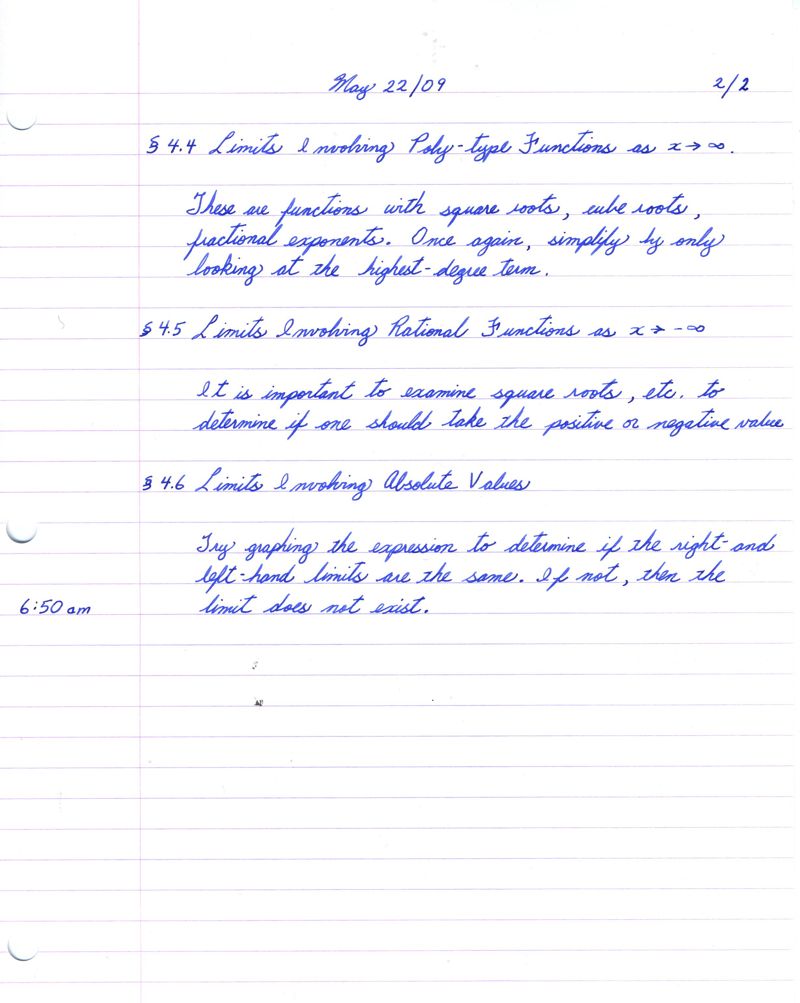 May 22/09 2/2
§ 4.4 Limits Involving Poly-type Functions as x → ∞.
These are functions with square roots, cube roots,
fractional exponents. Once again, simplify by only
looking at the highest-degree term.
§ 4.5 Limits Involving Rational Functions as x → -∞
It is important to examine square roots, etc. to
determine if one should take the positive or negative value
§ 4.6 Limits Involving Absolute Values
Try graphing the expression to determine if the right- and
left-hand limits are the same. If not, then the
6:50 am limit does not exist.